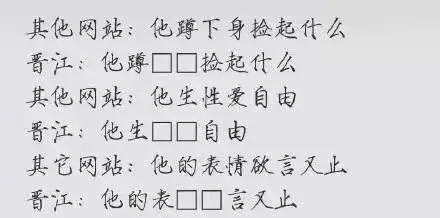 其他网站：他蹲下身捡起什么
晋江：他蹲□□捡起什么
其他网站：他生性爱自由
晋江：他生□□自由
其它网站：他的表情欲言又止
晋江：他的表□□言又止